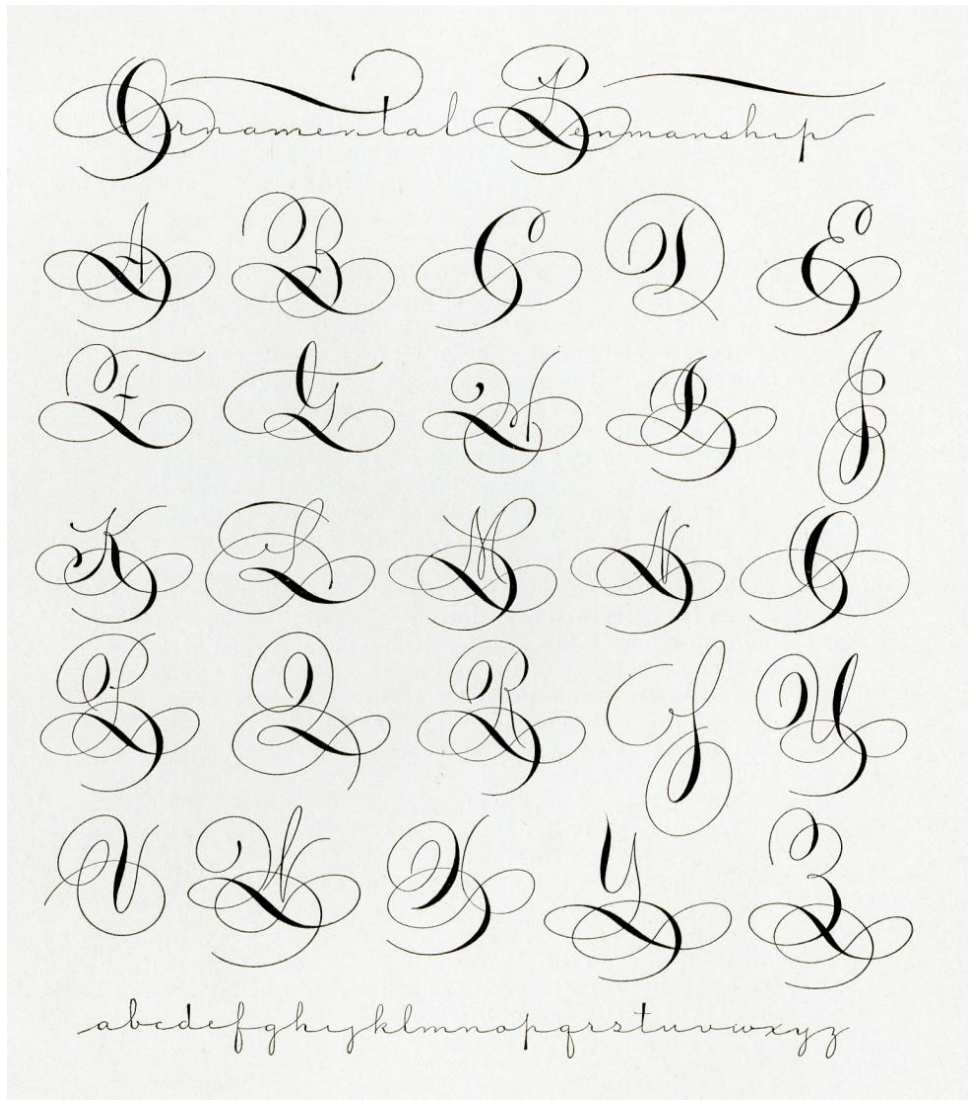 Ornamental Penmanship
A B C D E
F G H I J
K L M N O
P Q R S U
V W X Y Z
abcdefghijklmnopqrstuvwxyz